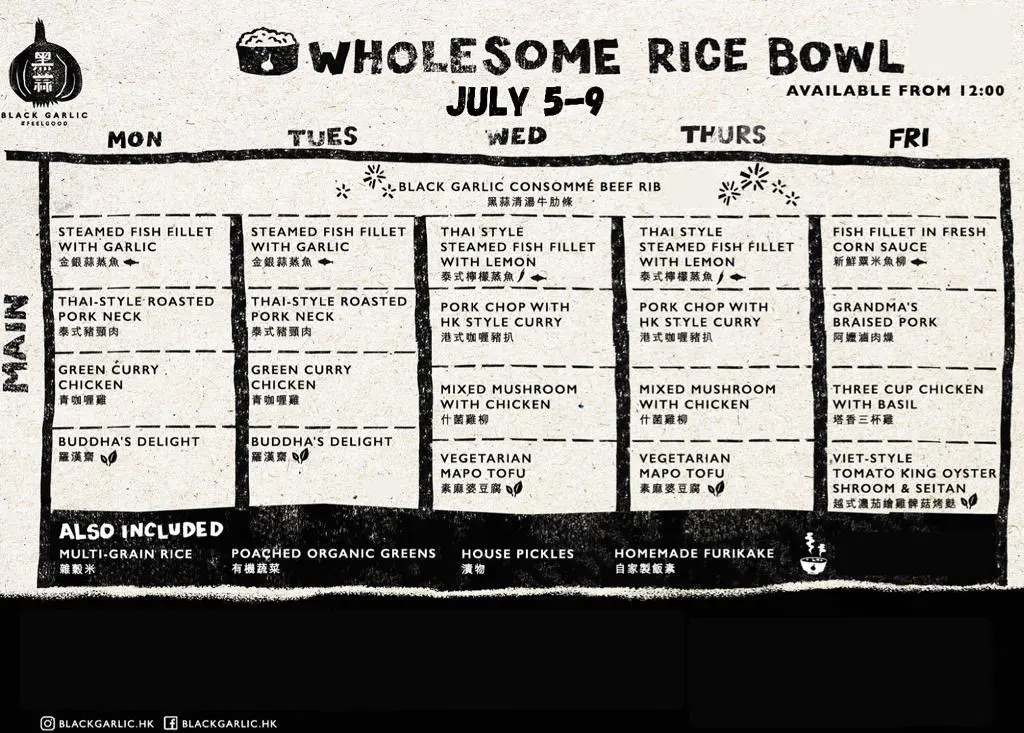 黑蒜
BLACK GARLIC
#FEELGOOD
WHOLESOME RICE BOWL
JULY 5–9
AVAILABLE FROM 12:00
MON TUES WED THURS FRI
MAIN
BLACK GARLIC CONSOMMÉ BEEF RIB
黑蒜清湯牛肋條
STEAMED FISH FILLET
WITH GARLIC
金銀蒜蒸魚
THAI-STYLE ROASTED
PORK NECK
泰式豬頸肉
GREEN CURRY
CHICKEN
青咖喱雞
BUDDHA'S DELIGHT
羅漢齋
STEAMED FISH FILLET
WITH GARLIC
金銀蒜蒸魚
THAI-STYLE ROASTED
PORK NECK
泰式豬頸肉
GREEN CURRY
CHICKEN
青咖喱雞
BUDDHA'S DELIGHT
羅漢齋
THAI STYLE
STEAMED FISH FILLET
WITH LEMON
泰式檸檬蒸魚
PORK CHOP WITH
HK STYLE CURRY
港式咖喱豬扒
MIXED MUSHROOM
WITH CHICKEN
什菌雞柳
VEGETARIAN
MAPO TOFU
素麻婆豆腐
THAI STYLE
STEAMED FISH FILLET
WITH LEMON
泰式檸檬蒸魚
PORK CHOP WITH
HK STYLE CURRY
港式咖喱豬扒
MIXED MUSHROOM
WITH CHICKEN
什菌雞柳
VEGETARIAN
MAPO TOFU
素麻婆豆腐
FISH FILLET IN FRESH
CORN SAUCE
新鮮粟米魚柳
GRANDMA'S
BRAISED PORK
阿嬤滷肉燥
THREE CUP CHICKEN
WITH BASIL
塔香三杯雞
VIET-STYLE
TOMATO KING OYSTER
SHROOM & SEITAN
越式濃茄燴雞髀菇烤麩
ALSO INCLUDED
MULTI-GRAIN RICE
雜穀米
POACHED ORGANIC GREENS
有機蔬菜
HOUSE PICKLES
漬物
HOMEMADE FURIKAKE
自家製飯素
BLACKGARLIC.HK BLACKGARLIC.HK